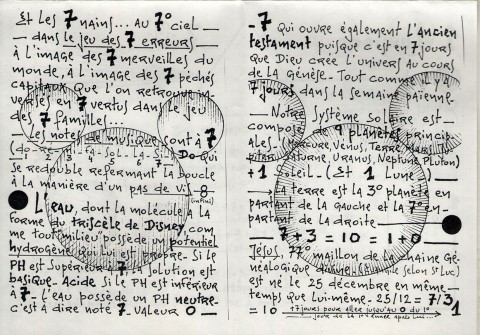 Et les 7 nains... Au 7° ciel —
— dans le jeu des 7 erreurs —
à l'image des 7 merveilles du
monde, à l'image des 7 péchés
capitaux que l'on retrouve in-
versés en 7 vertus dans le jeu
des 7 familles...
Les notes de musique sont à 7
(do-ré-mi-fa-sol-la-si) Do qui
1 2 3 4 5 6 7
se redouble refermant la boucle
à la manière d'un pas de vis 8
L'eau, dont la molécule a la
forme du triscèle de Disney, com
me tout milieu possède un potentiel
hydrogène qui lui est propre. Si le
PH est supérieur à 7 la solution est
basique. Acide si le PH est inférieur
à 7. L'eau possède un PH neutre
c'est à dire noté 7. Valeur 0 —
- 7 qui ouvre également l'Ancien
testament puisque c'est en 7 jours
que Dieu crée l'univers au cours
de la Génèse. Tout comme il y a
7 jours dans la semaine païenne.
— Notre système solaire est
composé de 9 planètes princip
ales. (Mercure, Vénus, Terre, Mars,
Saturne, Uranus, Neptune, Pluton)
+1 soleil - (Et 1 Lune)
→ La terre est la 3° planète en
partant de la gauche et la 7° en
partant de la droite —
→ 7+3=10=1+0
Jésus, 77° maillon de la chaîne Gé
néalogique (selon St Luc)
est né le 25 décembre en même
temps que lui-même. 25/12 = 7/3
10 +7 jours pour aller jusqu'au 0 du 1° 1
jour de la 1° année après lui...